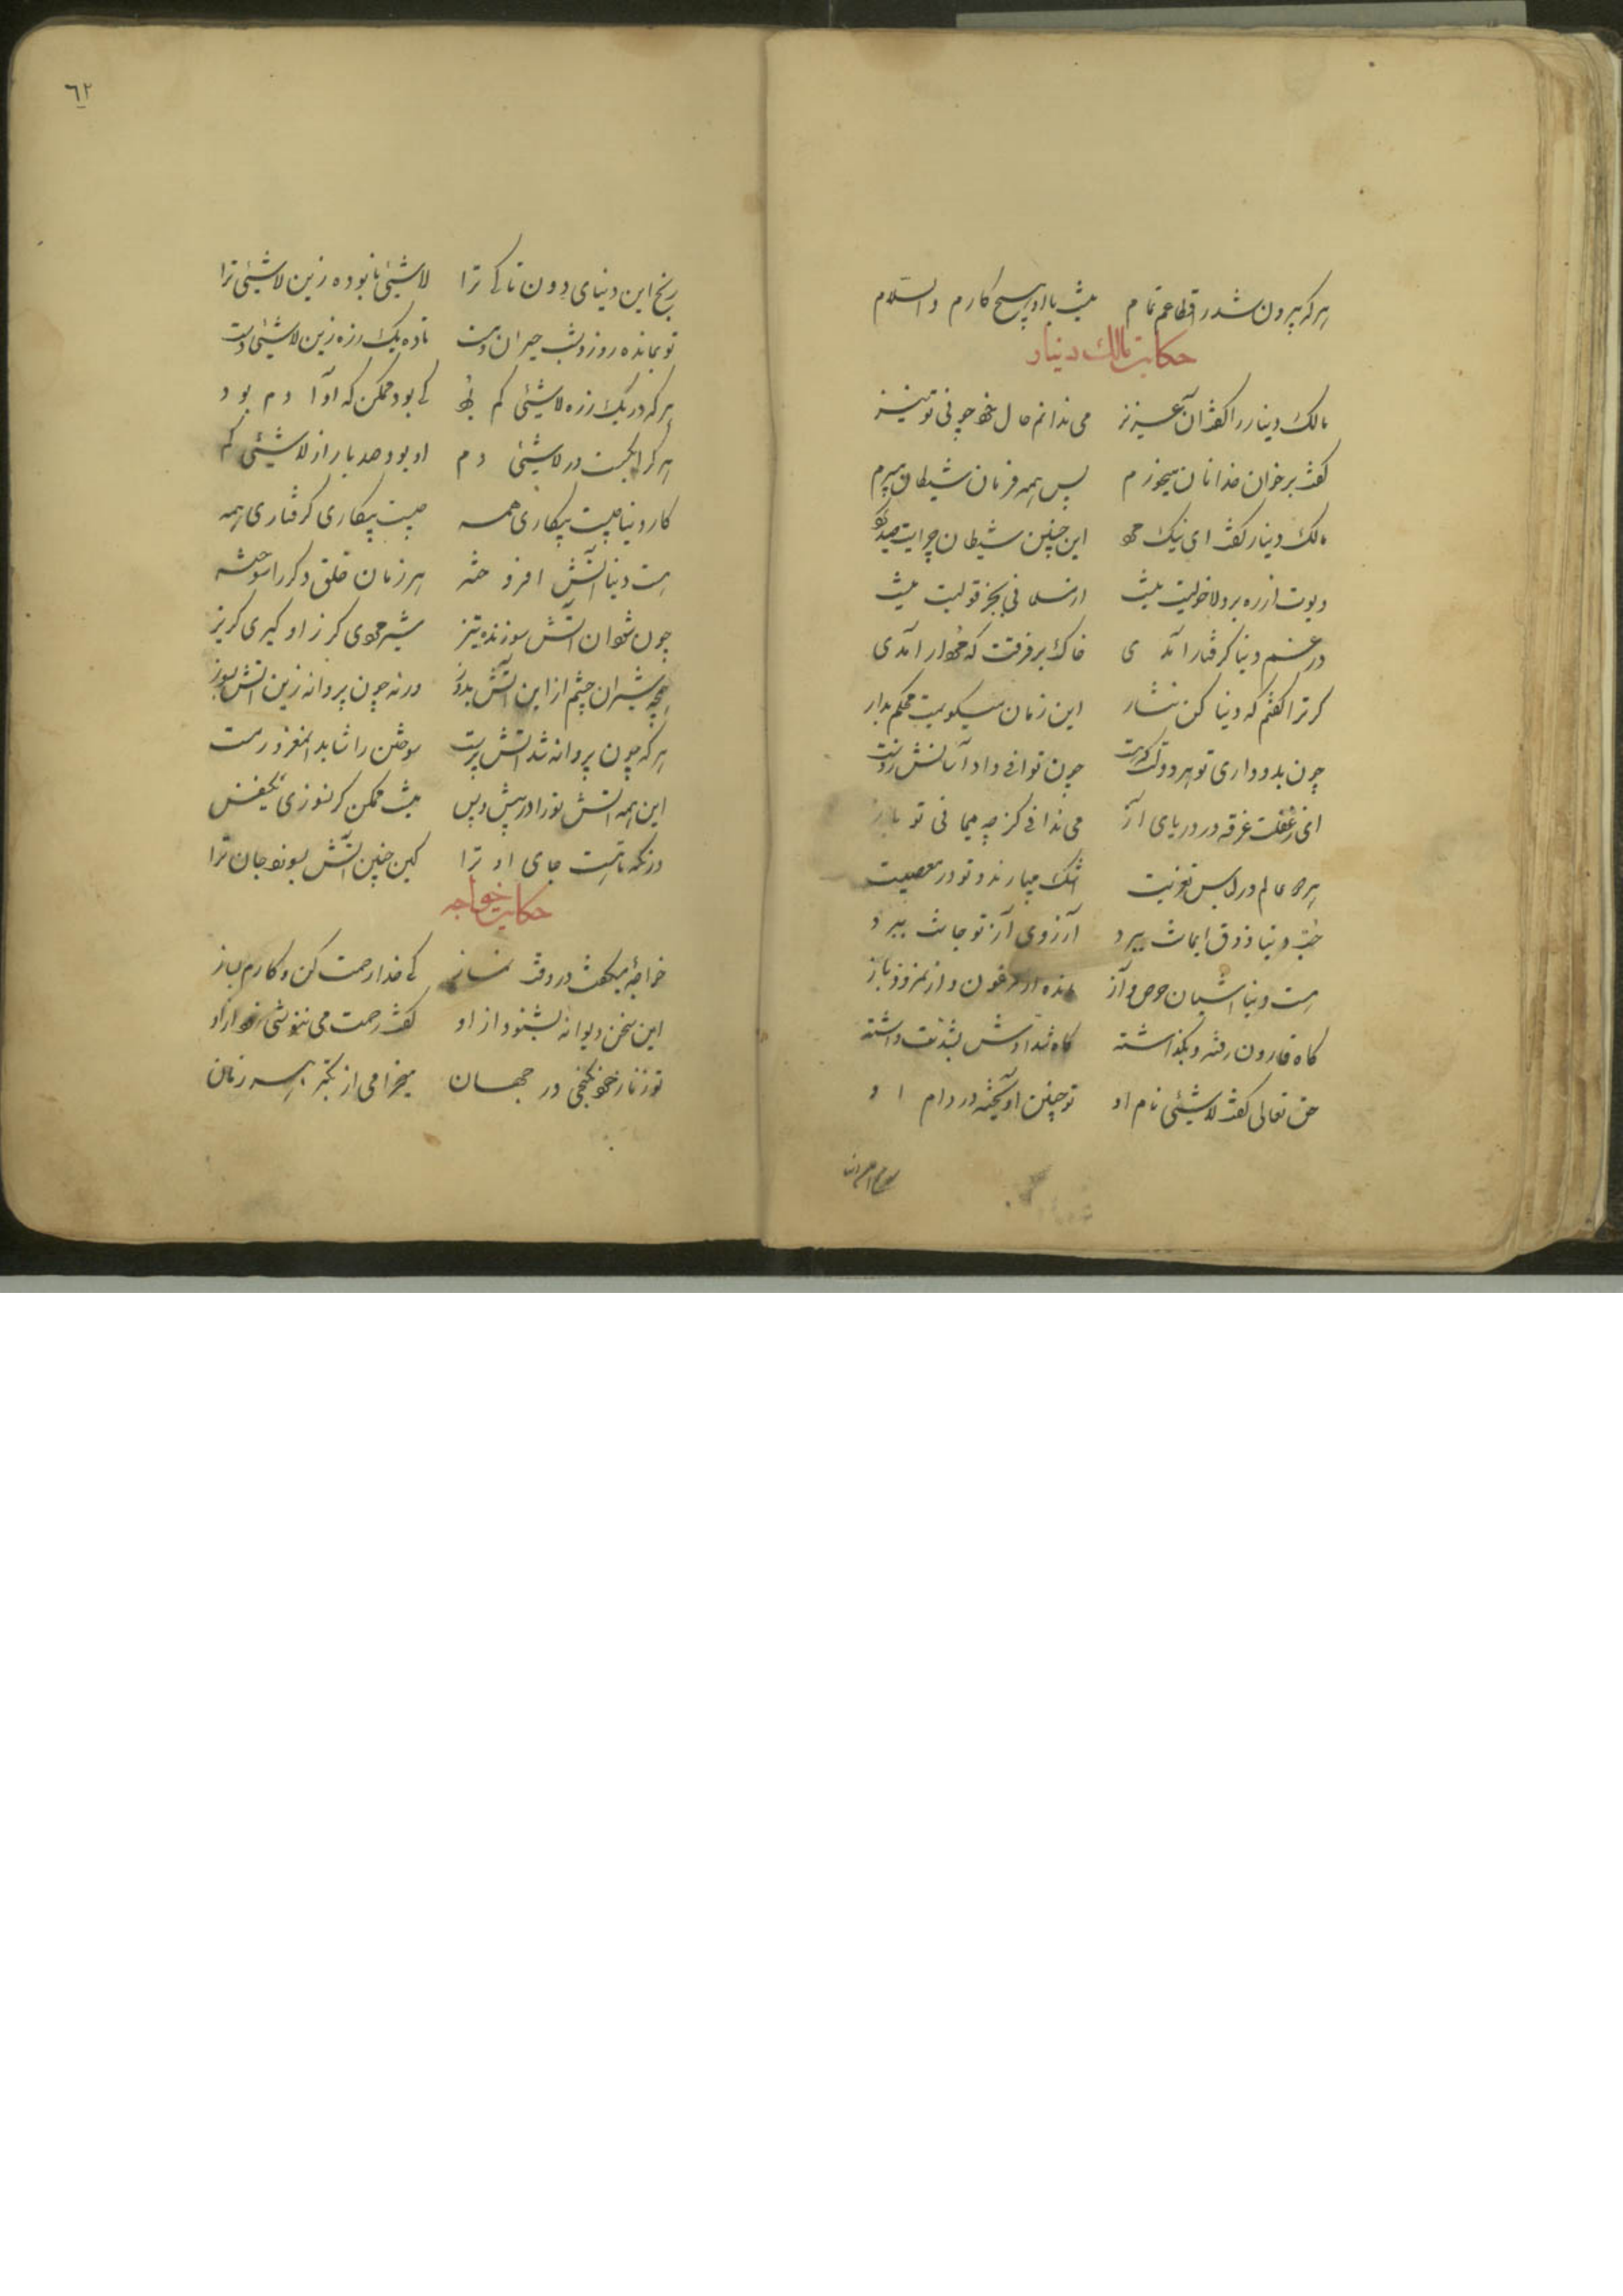 هر که بیرون شد ز اقطاعم تمام نیست با او هیچ کارم والسلام
حکایت مالک دینار
مالک دینار را گفت آن عزیز می ندانم حال خود چونی تو نیز
گفت بر خوان خدا نان میخورم پس همه فرمان شیطان میبرم
مالک دینار گفت ای نیک این چنین شیطان چرایت
دیوت از ره برد و لاحولیت نیست از مسلمانی بجز قولیت نیست
در غم دنیا گرفتار آمدی خاک بر فرقت که مردار آمدی
گر ترا گفتم که دنیا کن نثار این زمان میگویمت محکم بدار
چون بدو داری تو هر دولت که هست چون توانی داد آسانش ز دست
ای ز غفلت غرقه در دریای آز می ندانی کز چه میمانی تو باز
هر دو عالم در لباس تعزیت اشک میبارند و تو در معصیت
حب دنیا ذوق ایمانت ببرد آرزوی آز تو جانت ببرد
هست دنیا آشیان حرص و آز مانده از فرعون و از نمرود باز
گاه قارون رفته و بگذاشته گاه شدادش بشدت داشته
حق تعالی گفت لاشیئی نام او تو چنین آویخته در دام او
رنج این دنیای دون تا کی ترا لاشیئی نابوده زین لاشیئی ترا
تو بمانده روز و شب حیران و مست تا دهد یک ذره زین لاشیئی دست
هر که در یک ذره لاشیئی گم بود کی بود ممکن که او آدم بود
هر کرا بگسست در لاشیئی دم او بود صد بار از لاشیئی کم
کار دنیا چیست بیکاری همه چیست بیکاری گرفتاری همه
هست دنیا آتش افروخته هر زمان خلق دگر را سوخته
چون شود این آتش سوزنده تیز شیر مردی گر ازو گیری گریز
همچو شیران چشم از این آتش بدوز ورنه چون پروانه زین آتش بسوز
هر که چون پروانه شد آتش پرست سوختن را شاید آن مغرور مست
این همه آتش تو را در پیش و پس نیست ممکن گر نسوزی یکنفس
درنگر تا هست جای او ترا کین چنین آتش نسوزد جان ترا
حکایت خواجه
خواجهٔ میگفت در وقت نماز کی خدا رحمت کن و کارم بساز
این سخن دیوانه بشنود از او گفت رحمت می از او
تو ز ناز خود نگنجی در جهان میخرامی از تکبر هر زمان